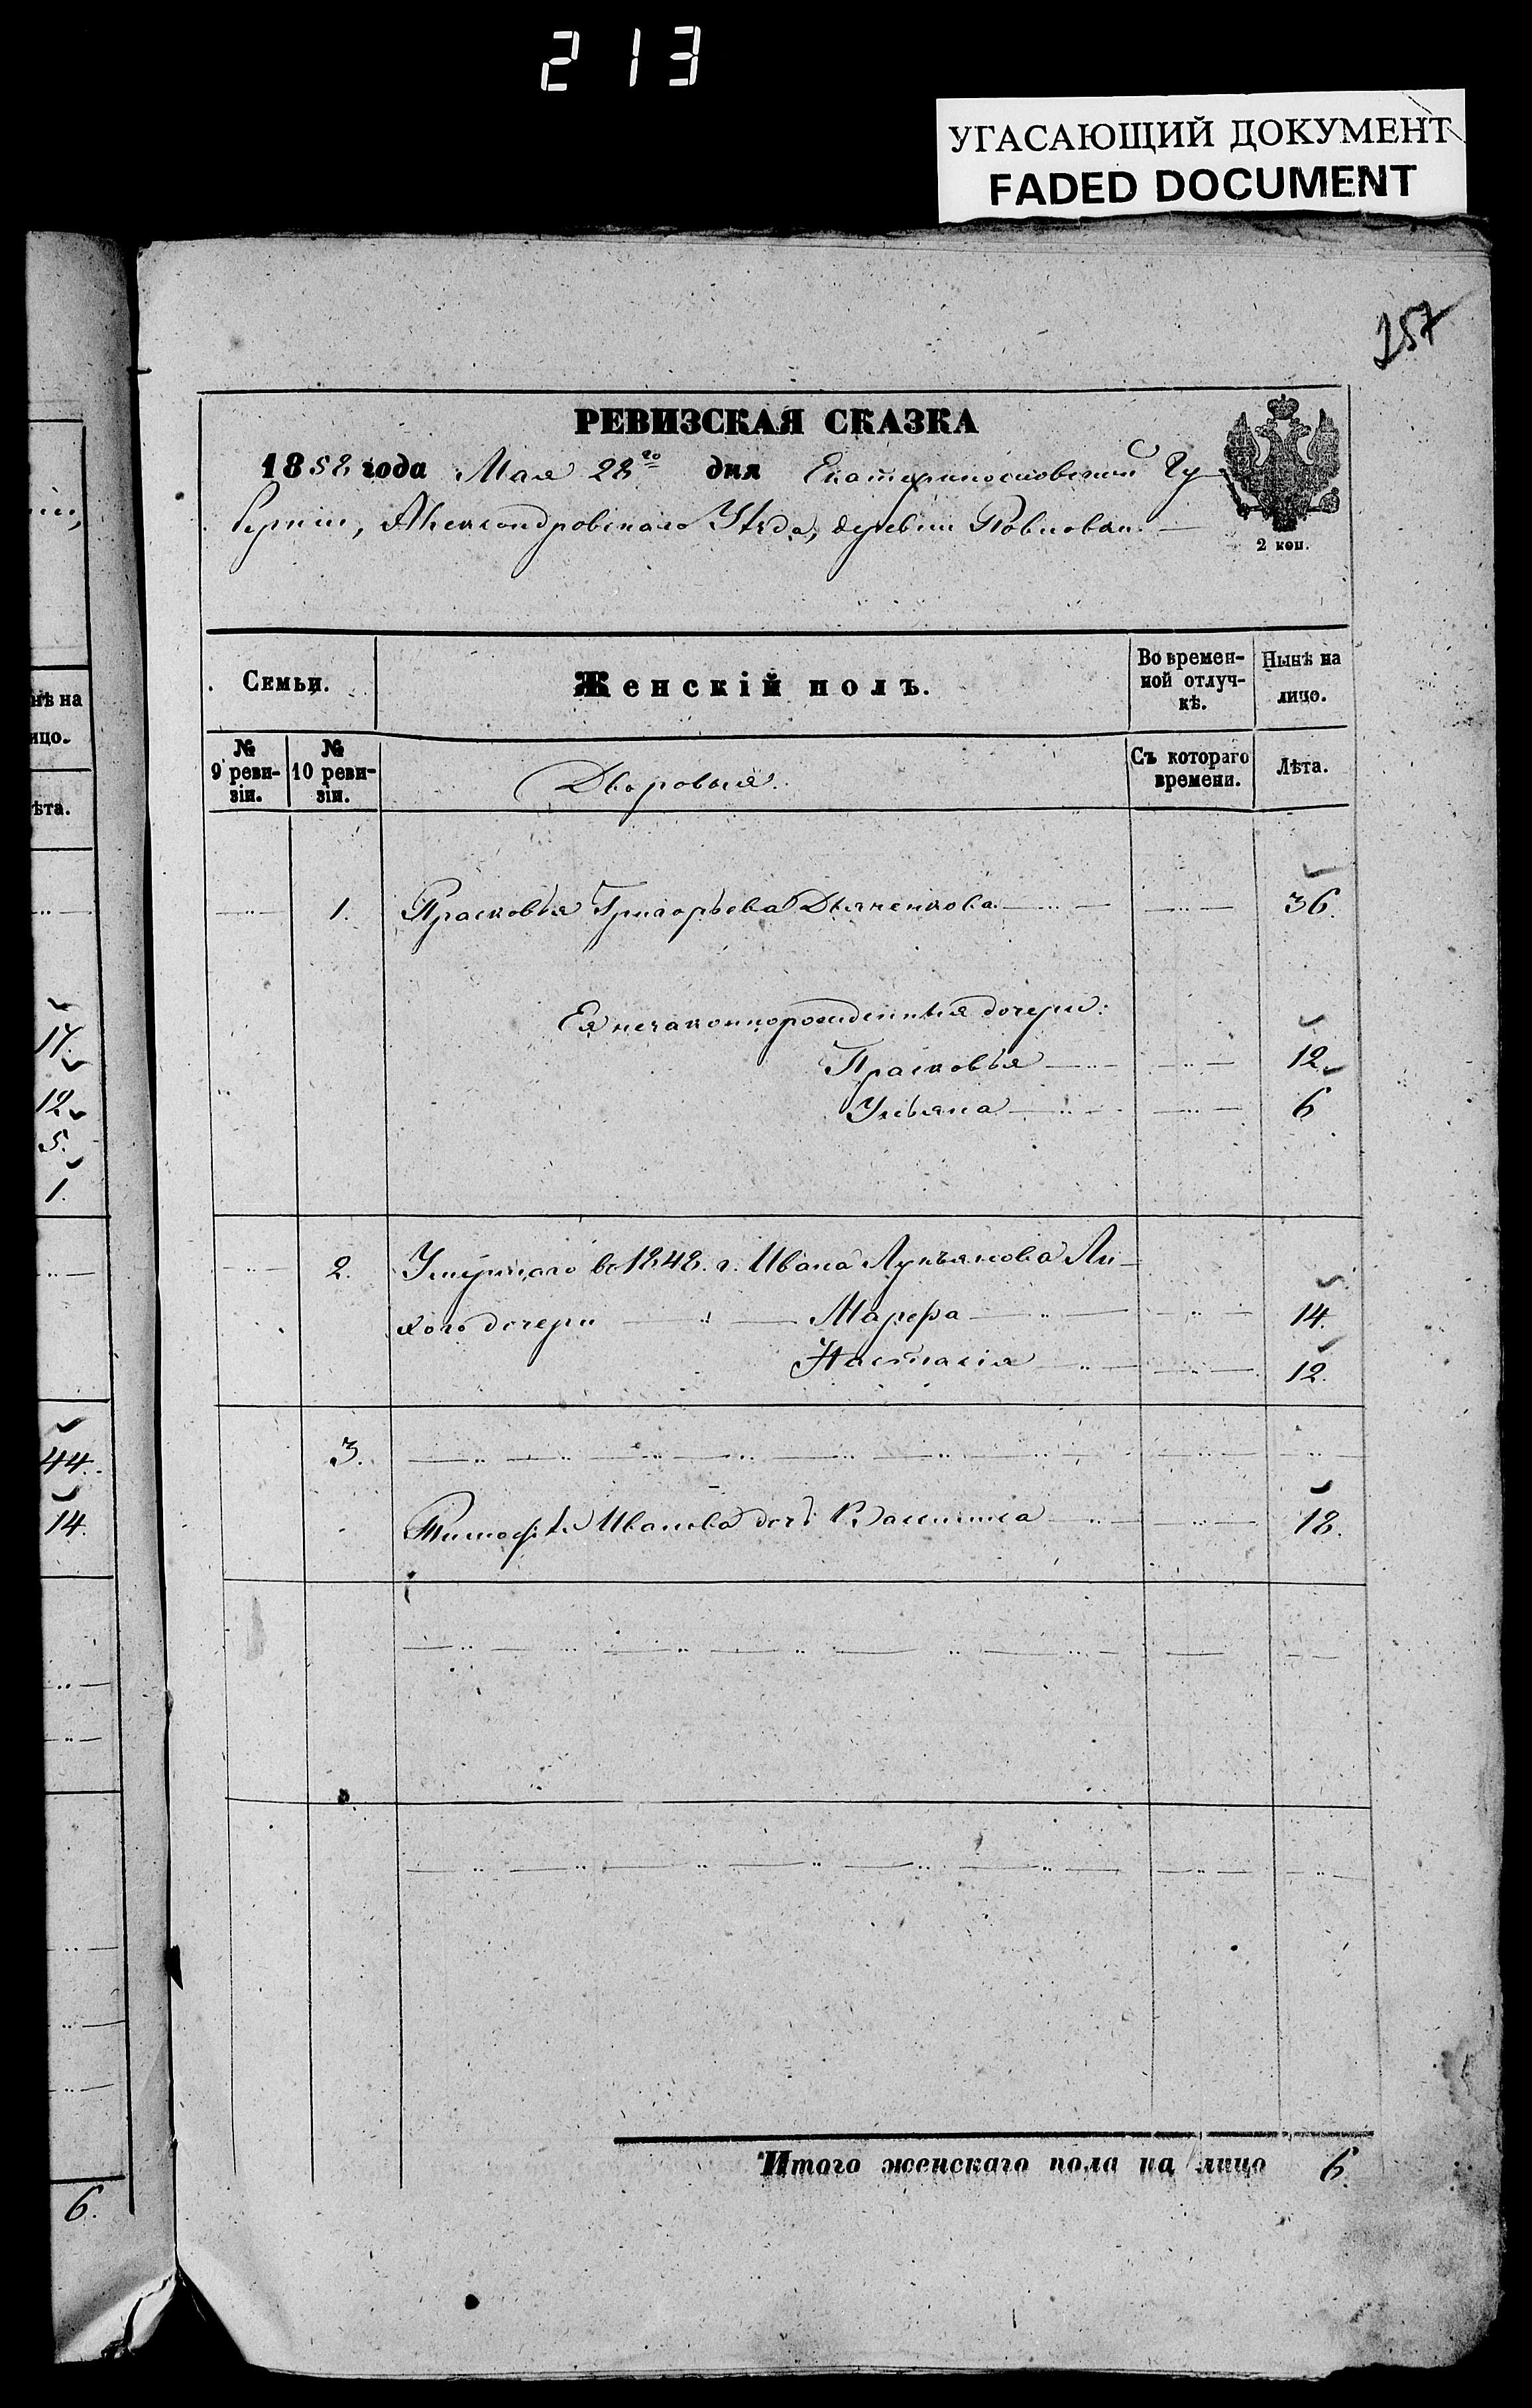 213
УГАСАЮЩИЙ ДОКУМЕНТ
FADED DOCUMENT
257
РЕВИЗСКАЯ СКАЗКА
1858 года Мая 28го дня Екатеринославской Гу
берніи, Александровскаго Уѣзда, деревни Павловки.
2 коп.
Семьи.
Женскій полъ.
Во времен-
ной отлуч-
кѣ.
Нынѣ на
лицо.
№
9 реви-
зіи.
№
10 реви-
зіи.
Дворовыя.
Съ котораго
времени.
Лѣта.
1. Прасковья Григорьева Дьяченкова 36.
Ея незаконнорожденныя дочери:
Прасковья 12
Ульяна 6
2. Умершаго въ 1848. г. Ивана Лукьянова Ли-
хого дочери Марѳа 14.
Настасія 12.
3.
Тимофѣя Иванова дочь Василиса 18.
Итого женскаго пола на лицо 6.
нѣ на
ицо.
ѣта.
17.
12
5.
1.
44.
14.
6.